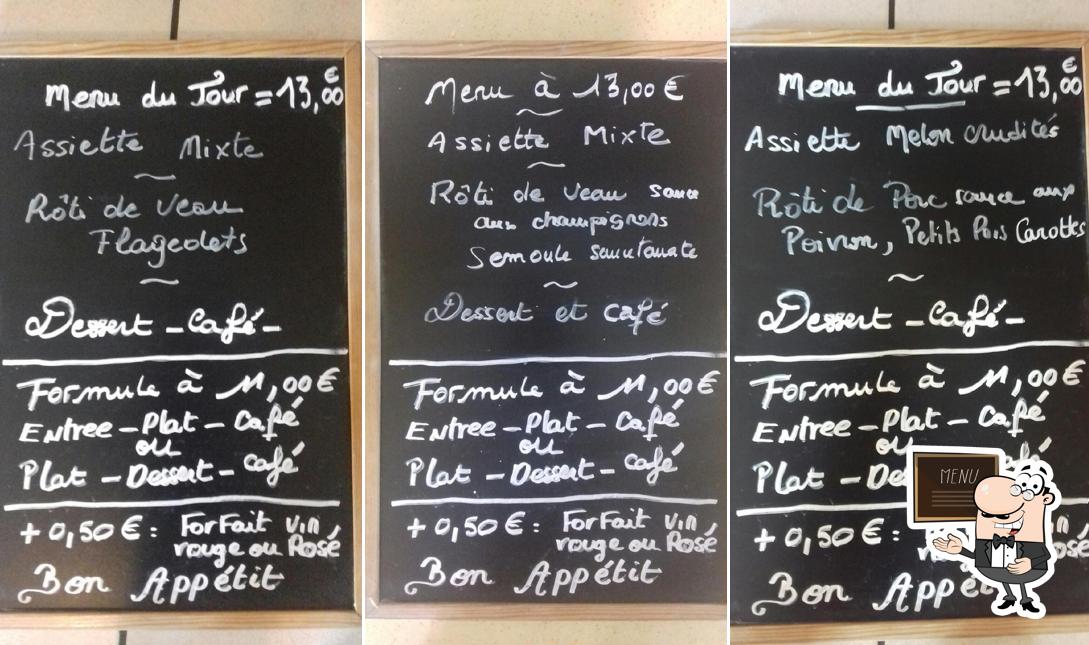 Menu du Jour = 13,00 €
Assiette Mixte
~
Rôti de Veau
Flageolets
~
Dessert - Café -
Formule à 11,00 €
Entree - Plat - Café
ou
Plat - Dessert - Café
+ 0,50 € : Forfait vin
rouge ou Rosé
Bon Appétit
Menu à 13,00 €
~
Assiette Mixte
~
Rôti de Veau sauce
aux champignons
Semoule
~
Dessert et café
Formule à 11,00 €
Entree - Plat - Café
ou
Plat - Dessert - Café
+ 0,50 € : Forfait vin
rouge ou Rosé
Bon Appétit
Menu du Jour = 13,00 €
Assiette Melon crudités
Rôti de Porc sauce aux
Poivron, Petits Pois Carottes
~
Dessert - Café -
Formule à 11,00 €
Entree - Plat - Café
ou
Plat
MENU
+ 0,50 € :
Bon